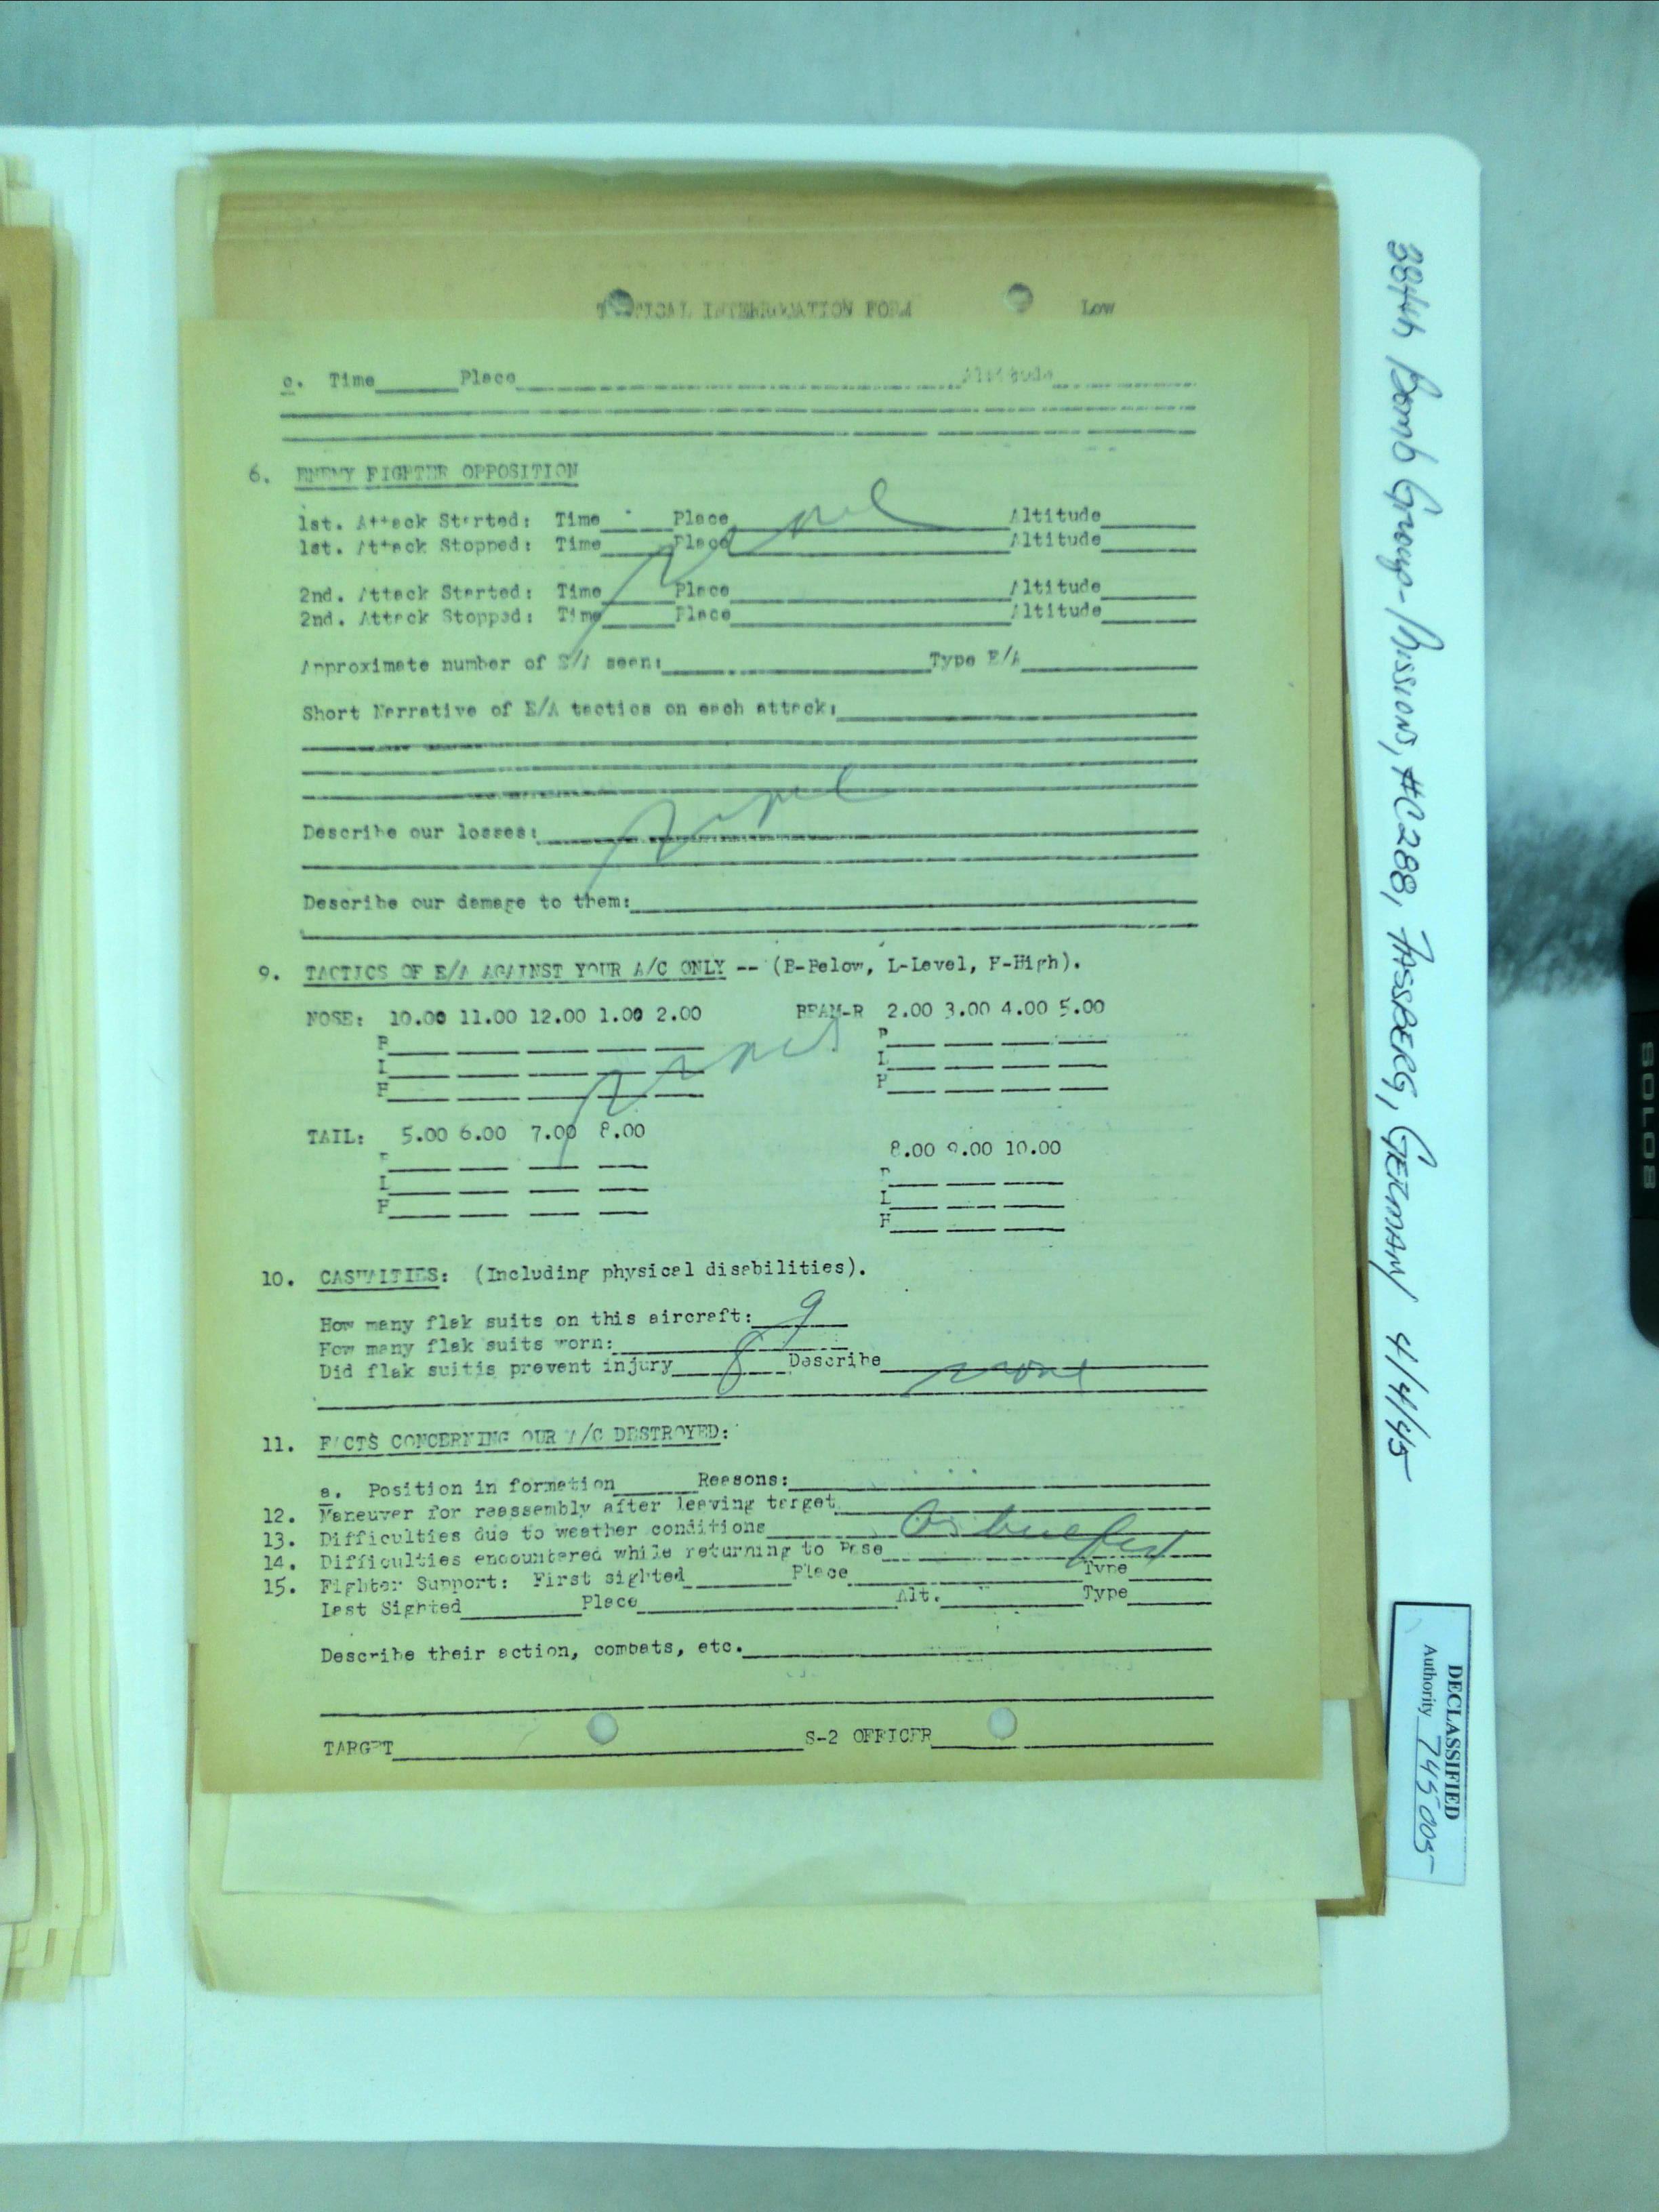 TACTICAL INTERROGATION FORM Low
c. Time Place Altitude
6. ENEMY FIGHTER OPPOSITION
1st. Attack Started: Time Place Altitude
1st. Attack Stopped: Time Place Altitude
None
2nd. Attack Started: Time Place Altitude
2nd. Attack Stopped: Time Place Altitude
Approximate number of E/A seen: Type E/A
Short Narrative of E/A tactics on each attack:
None
Describe our losses:
Describe our damage to them:
9. TACTICS OF E/A AGAINST YOUR A/C ONLY -- (B-Below, L-Level, H-High).
NOSE: 10.00 11.00 12.00 1.00 2.00 BEAM-R 2.00 3.00 4.00 5.00
B B
L L
H H
None
TAIL: 5.00 6.00 7.00 8.00
8.00 9.00 10.00
B B
L L
H H
10. CASUALTIES: (Including physical disabilities).
How many flak suits on this aircraft: 9
How many flak suits worn:
Did flak suitis prevent injury 8 Describe None
11. FACTS CONCERNING OUR A/C DESTROYED:
a. Position in formation Reasons:
12. Maneuver for reassembly after leaving target
13. Difficulties due to weather conditions As briefed
14. Difficulties encountered while returning to Base
15. Fighter Support: First sighted Place Type
Last Sighted Place Alt. Type
Describe their action, combats, etc.
TARGET S-2 OFFICER
384th Bomb Group-Missions, #C288, FASSBERG, GERMANY 4/4/45
DECLASSIFIED
Authority 745005
SOLOS